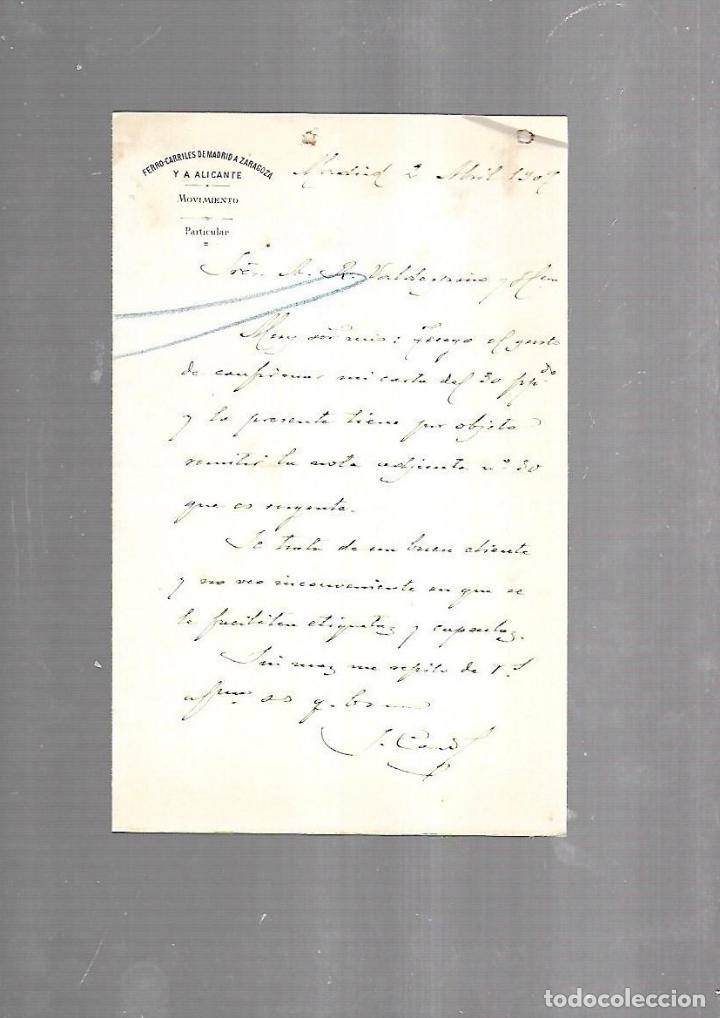 FERRO-CARRILES DE MADRID A ZARAGOZA
Y A ALICANTE
MOVIMIENTO
Particular
Madrid 2 Abril 1907
Sres. M. R. Valdespino y Hno
Muy Sres mios: Tengo el gusto
de confirmar mi carta del 30 ppdo
y la presente tiene por objeto
remitir la nota adjunta nº 30
que es urgente.
Se trata de un buen cliente
y no veo inconveniente en que se
le faciliten etiquetas y capsulas.
Sin mas me repito de Vs
afmo ss q. b s m
J.
todocoleccion.net